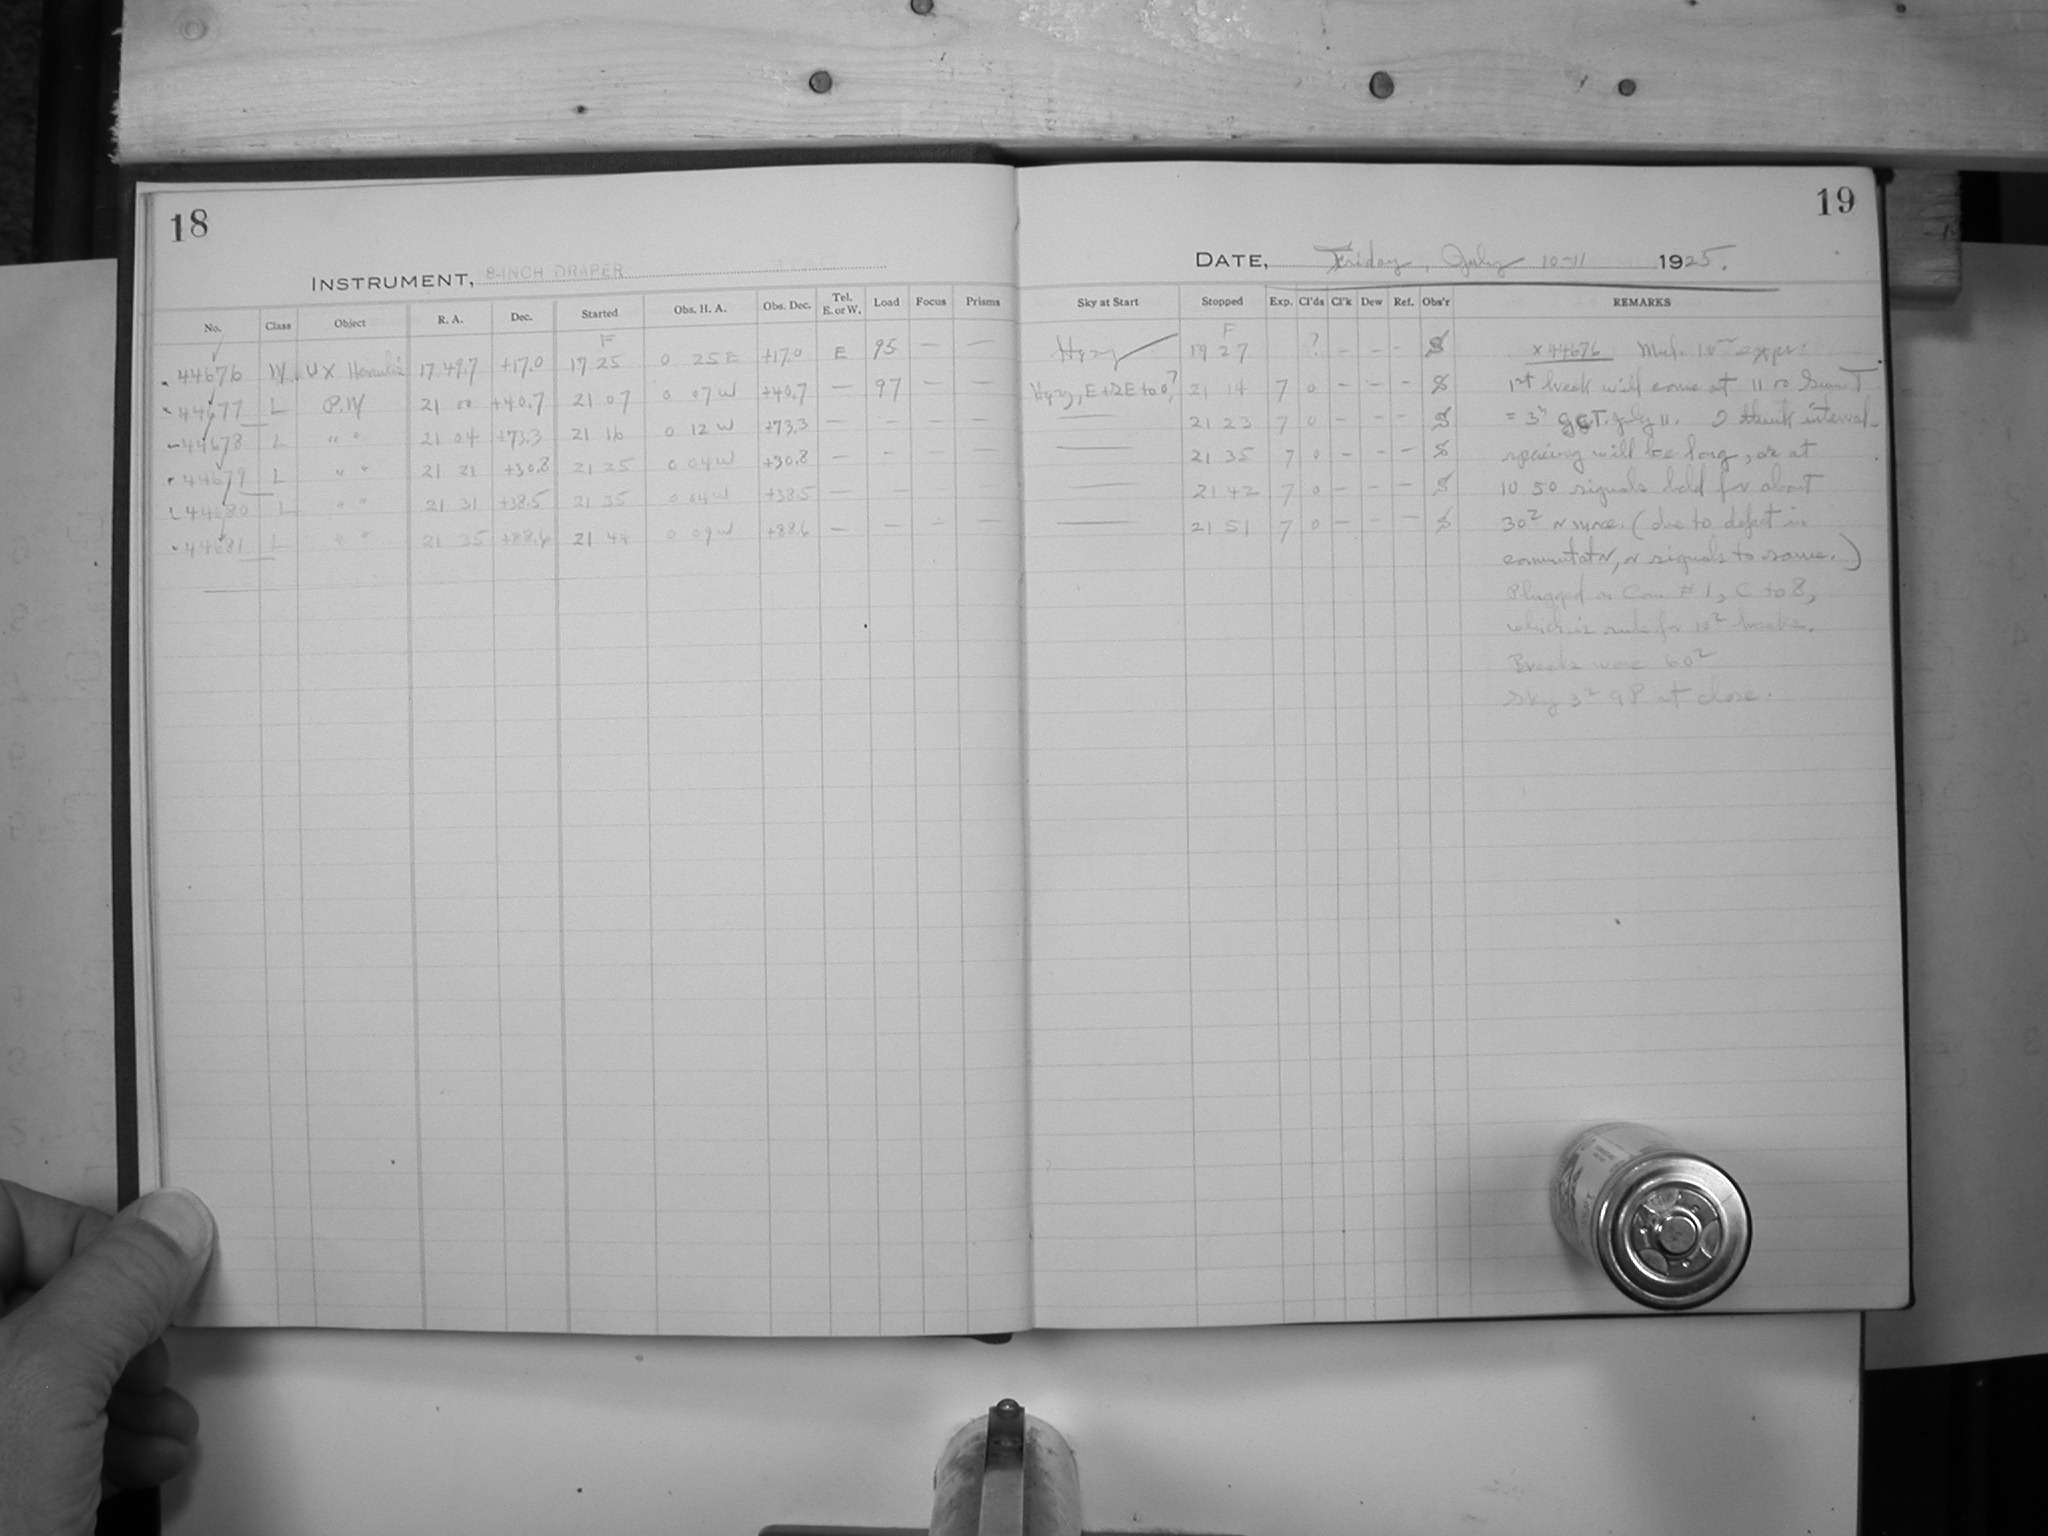 18
INSTRUMENT, 8-INCH DRAPER
No. Class Object R. A. Dec. Started Obs. H. A. Obs. Dec. Tel. E. or W. Load Focus Prisms
F
44676 UX Herculis 17 49.7 +17.0 17 25 0 25 E +17.0 E 95 — —
44677 L 21 00 +40.7 21 07 0 07 W +40.7 — 97 — —
44678 L " " 21 04 +73.3 21 16 0 12 W +73.3 — - — —
44679 L " " 21 21 +30.8 21 25 0 04 W +30.8 — - — —
44680 L " " 21 31 +38.5 21 35 0 04 W +38.5 — — - —
44681 L " " 21 35 +88.6 21 44 0 09 W +88.6 — — - —
19
DATE, Friday, July 10-11 1925.
Sky at Start Stopped Exp. Cl'ds Cl'k Dew Ref. Obs'r REMARKS
F
Hazy 19 27 ? - - - S
Hazy, E + 2E to 0? 21 14 7 0 - - - S
—— 21 23 7 0 - - - S
—— 21 35 7 0 - - - S
—— 21 42 7 0 - - - S
—— 21 51 7 0 - - - S
x 44676 10m exps.
1st break will come at 11 00
July 11. I think interval
spacing will be long, as at
10 50 signals held for about
30s or more. (due to defect in
commutator, or signals to same.)
Plugged on # 1, C to 8,
which is rule for 10s breaks.
Breaks were 60s
Sky at close.